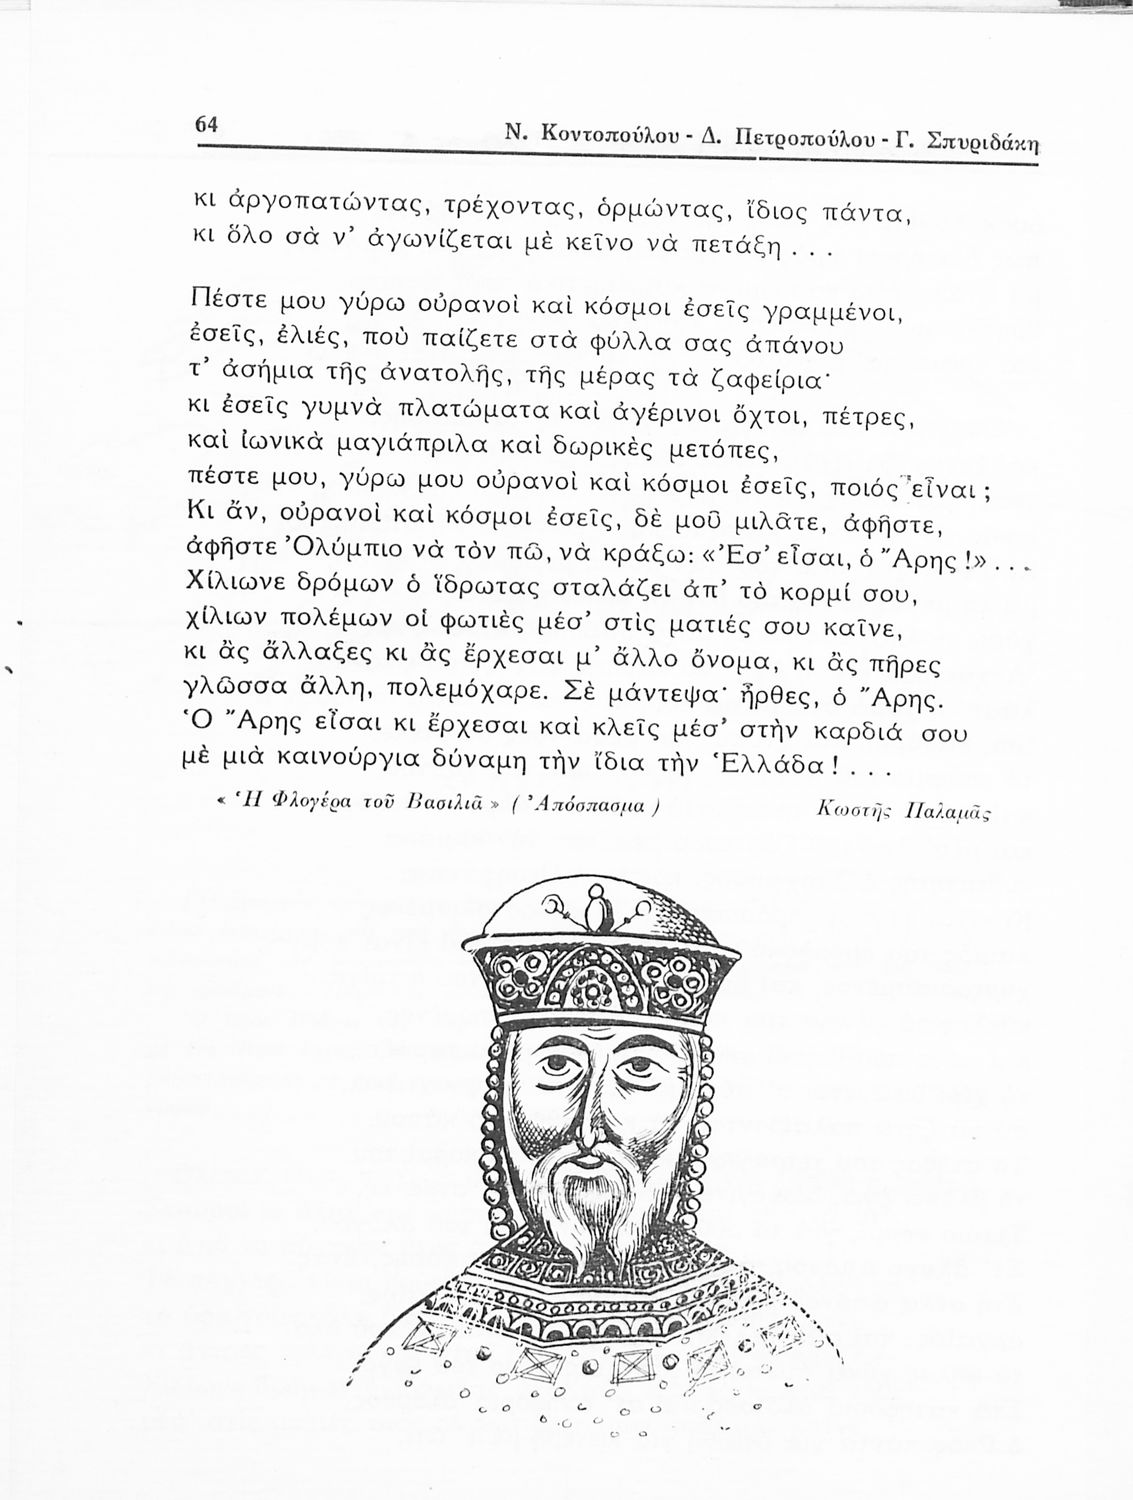 64
Ν. Κοντοπούλου - Δ. Πετροπούλου - Γ. Σπυριδάκη
κι ἀργοπατώντας, τρέχοντας, ὁρμώντας, ἴδιος πάντα,
κι ὅλο σὰ ν’ ἀγωνίζεται μὲ κεῖνο νὰ πετάξη . . .
Πέστε μου γύρω οὐρανοὶ καὶ κόσμοι ἐσεῖς γραμμένοι,
ἐσεῖς, ἐλιές, ποὺ παίζετε στὰ φύλλα σας ἀπάνου
τ’ ἀσήμια τῆς ἀνατολῆς, τῆς μέρας τὰ ζαφείρια·
κι ἐσεῖς γυμνὰ πλατώματα καὶ ἀγέρινοι ὄχτοι, πέτρες,
καὶ ἰωνικὰ μαγιάπριλα καὶ δωρικὲς μετόπες,
πέστε μου, γύρω μου οὐρανοὶ καὶ κόσμοι ἐσεῖς, ποιός εἶναι ;
Κι ἄν, οὐρανοὶ καὶ κόσμοι ἐσεῖς, δὲ μοῦ μιλᾶτε, ἀφῆστε,
ἀφῆστε Ὀλύμπιο νὰ τὸν πῶ, νὰ κράξω: «Ἐσ’ εἶσαι, ὁ Ἄρης !» . . .
Χίλιωνε δρόμων ὁ ἵδρωτας σταλάζει ἀπ’ τὸ κορμί σου,
χίλιων πολέμων οἱ φωτιὲς μέσ’ στὶς ματιές σου καῖνε,
κι ἂς ἄλλαξες κι ἂς ἔρχεσαι μ’ ἄλλο ὄνομα, κι ἂς πῆρες
γλῶσσα ἄλλη, πολεμόχαρε. Σὲ μάντεψα· ἦρθες, ὁ Ἄρης.
Ὁ Ἄρης εἶσαι κι ἔρχεσαι καὶ κλεῖς μέσ’ στὴν καρδιά σου
μὲ μιὰ καινούργια δύναμη τὴν ἴδια τὴν Ἑλλάδα ! . . .
« Ἡ Φλογέρα τοῦ Βασιλιᾶ » ( Ἀπόσπασμα )
Κωστῆς Παλαμᾶς